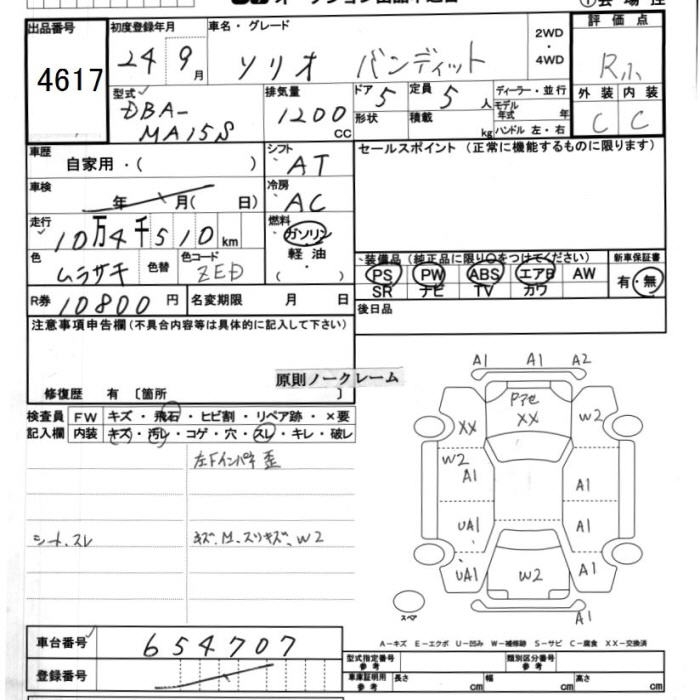 出品番号
初度登録年月
車名・グレード
2WD
・
4WD
評価点
4617
24 9月
ソリオ バンディット
R
外装 内装
C C
型式
DBA-
MA15S
排気量
1200
CC
ドア
5
形状
定員
5人
積載
kg
ディーラー・並行
モデル
年式 年
ハンドル 左・右
車歴
自家用・( )
シフト
AT
セールスポイント (正常に機能するものに限ります)
車検
年 月( 日)
冷房
AC
走行
10万4千510km
燃料
ガソリン
軽油
( ・ )
色
ムラサキ
色替
色コード
ZED
装備品 (純正品に限り○をつけてください)
新車保証書
PS PW ABS エアB AW
有・無
SR ナビ TV カワ
R券
10800円
名変期限 月 日
後日品
注意事項申告欄(不具合内容等は具体的に記入して下さい)
原則ノークレーム
修復歴 有 〔箇所 〕
検査員
記入欄
FW キズ・飛石・ヒビ割・リペア跡・×要
内装 キズ・汚レ・コゲ・穴・スレ・キレ・破レ
左Fインパネ歪
シート、スレ
キズ、M、スリキズ、W2
A1 A1 A2
Pアセ
XX
XX
W2
W2
A1
A1
UA1
A1
UA1
W2
A1
A1
スペア
A-キズ E-エクボ U-凹み W-補修跡 S-サビ C-腐食 XX-交換済
車台番号
654707
登録番号
型式指定番号
参考
類別区分番号
参考
車庫証明用
参考
長さ cm
幅 cm
高さ cm